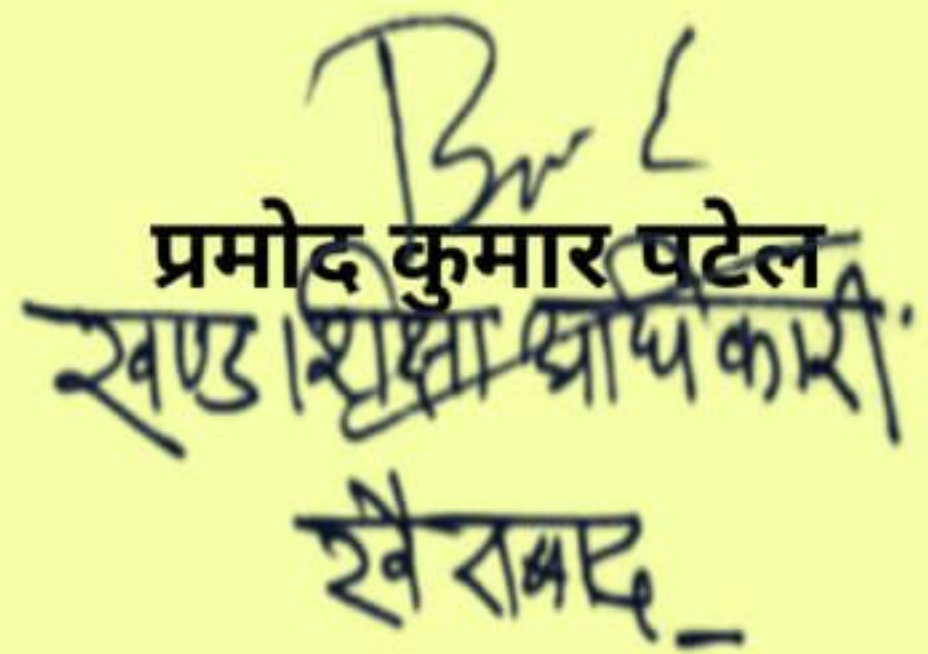 प्रमोद कुमार पटेल
खण्ड शिक्षा अधिकारी
खैराबाद